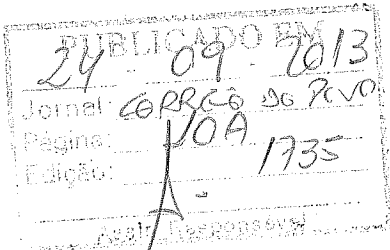 PUBLICADO EM
24 - 09 - 2013
Jornal: CORREIO DO POVO
Página: 10A
Edição: 1735
Assin. Responsável